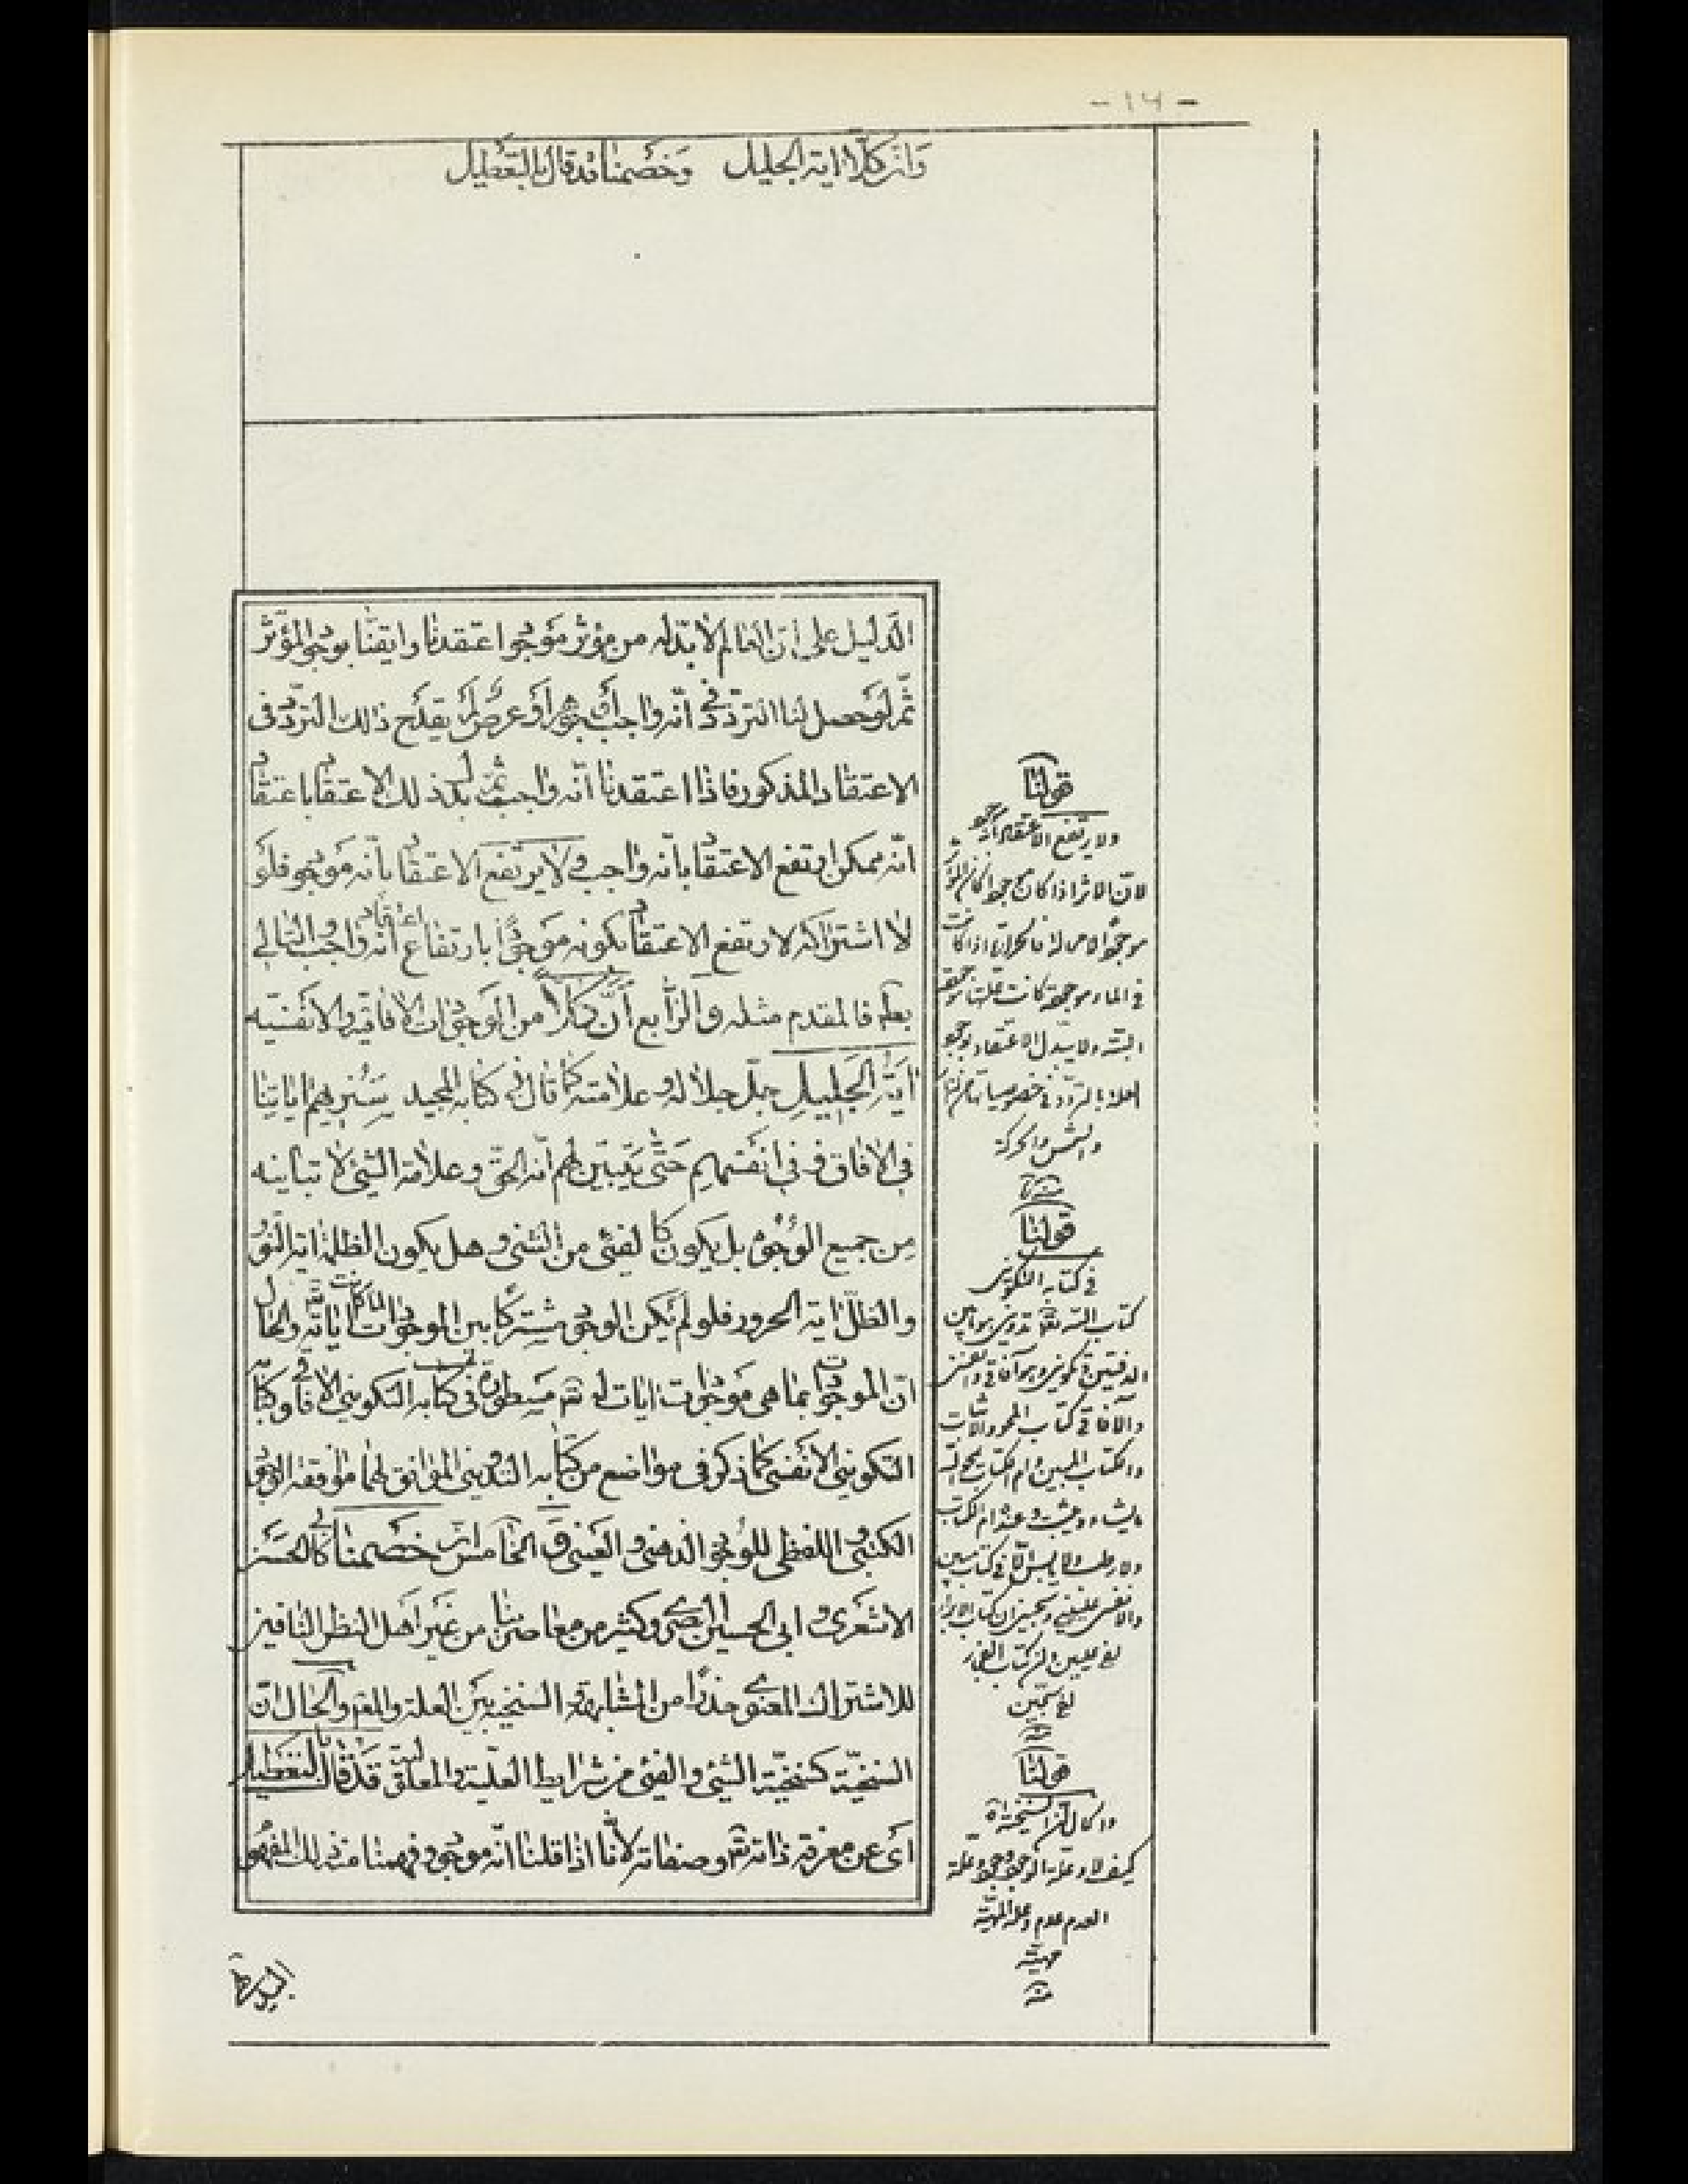 - ١٤ -
وَانّ كلّا اية الجليل وَخَصمنا قد قال بالتعطيل
الدليل على انّ العالم لا بدّ له من مؤثر موجود اعتقدنا وايقنا بوجود المؤثر
ثمّ لو حصل لنا التردّد في انّه واجب أو جوهر أو عرض لم يقدح ذلك التردّد فى
الاعتقاد المذكور فاذا اعتقدنا انّه واجب ثمّ تبدّل ذلك الاعتقاد باعتقاد
انّه ممكن ارتفع الاعتقاد بانّه واجب ولا يرتفع الاعتقاد بانّه موجود فلو
لا اشتراكه لارتفع الاعتقاد بكونه موجودًا بارتفاع اعتقاد انّه واجب والتالى
بطم فالمقدم مثله والرّابع أنّ كلًّا من الموجودات الافاقيّه والانفسيّه
ايَة الجَليلِ جلّ جلاله وعلامته كما قال فى كتابه المجيد سَنُريهم اياتنا
فى الافاق وفى انفسهم حتّى يتبيّن لهم انّه الحقّ وعلامة الشئ لا تباينه
مِن جميع الوُجُوه بل يكون كالفئى من الشئ وهل يكون الظلمة اية النور
والظلّ اية الحرور فلو لم يكن الوجود مشتركًا بين الموجودات لما كانت اياته تَع والحال
انّ الموجودات بما هى موجودات ايات له تَع مسطورة فى كتابه التكوينى الافاقى وكتابه
التكوينى الانفسى كما ذكر فى مواضع من كتابه التدوينى الموافق لهما موافقة الوجود
الكتبى واللفظى للوجود الذهنى والعينى والخامس انّ خصمنا كابى الحسن
الاشعرى وابى الحسين البصرى وكثير من معاصرينا من غير اهل النظر النافين
للاشتراك المعنوى حذرًا من المشابهة والسنخية بين العلة والمعم والحال انّ
السنخيّة كسنخيّة الشئ والفئى من شرايط العلّية والمعلوليّة قد قال بالتعطيل
أى عن معرفة ذاته تَع وصفاته لانّا اذا قلنا انّه موجود وفهمنا منه ذلك المفهوم
قولنا
ولا يرتفع الاعتقاد بانّه موجود
لانّ الاثر اذا كان موجودا كان المؤثر
موجودًا لا محالة فالحرارة اذا كانت
فى الماء موجودة كانت علّتها موجودة
البتّه ولا يتبدّل الاعتقاد بوجود
العلة بالتردّد فى خصوصياتها من النار
والشمس والحركة
منه
قولنا
فى كتابه التكوينى
كتاب الله تَع تدوينى هو ما بين
الدفتين وتكوينى وهو آفاقى وانفسى
والآفاقى كتاب المحو والاثبات
والكتاب المبين وام الكتاب يمحو الله
ما يشاء ويثبت وعنده ام الكتاب
ولا رطب ولا يابس الّا فى كتاب مبين
والانفسى علّيينى وسجينى ان كتاب الابرار
لفى علّيين وان كتاب الفجار
لفى سجّين
منه
قولنا
والحال انّ السنخيّة اه
كيف لا وعلّة الوجود وجود وعلّة
العدم عدم وعلة المهيّة
مهيّة
منه